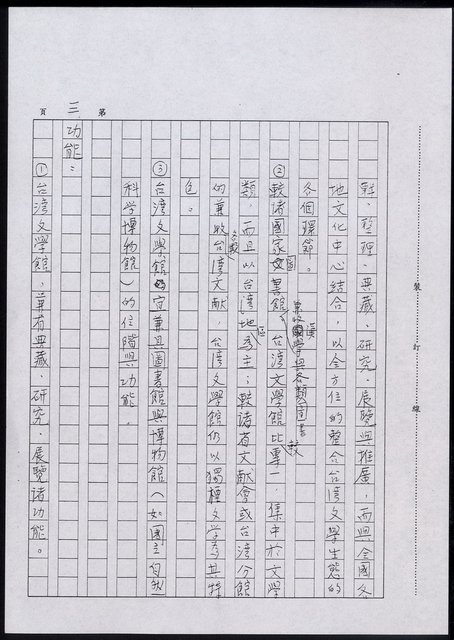 第三頁
輯、整理、典藏、研究、展覽與推廣，而與全國各
地文化中心結合，以全方位的整合台灣文學生態的
各個環節。
兼收漢學與各類圖書
②較諸國家圖書館，台灣文學館比較專一，集中於文學
類，而且以台灣地區為主；較諸省文獻會或台灣分館
的兼收各類台灣文獻，台灣文學館仍以獨種文學為其特
色。
③台灣文學館宜兼具圖書館與博物館（如國立自然
科學博物館）的位階與功能。
三功能：
①台灣文學館，兼有典藏、研究、展覽諸功能。
裝訂線